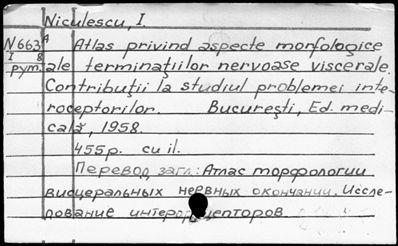 Niculescu, I
N663 A Atlas privind aspecte morfologice
I 8 ale terminațiilor nervoase viscerale.
рум. Contribuții la studiul problemei inte-
roceptorilor. București, Ed. medi-
cală, 1958.
455 p. cu il.
Перевод загл.: Атлас морфологии
висцеральных нервных окончаний. Иссле-
дование интерорецепторов